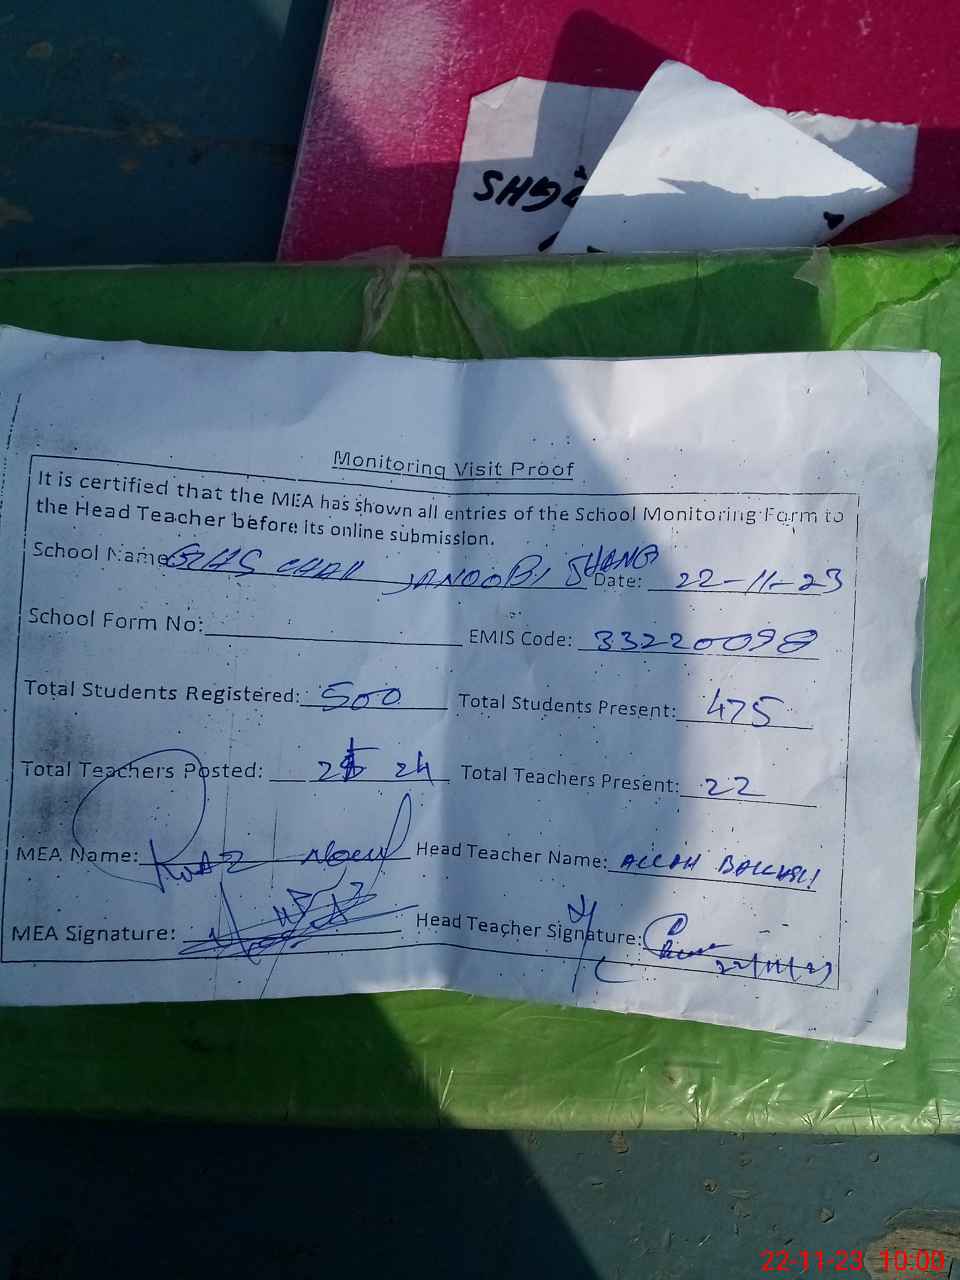 SHGG
Monitoring Visit Proof
It is certified that the MEA has shown all entries of the School Monitoring Form to
the Head Teacher before its online submission.
School Name GHS CHAH JANOOBI JHANG Date: 22-11-23
School Form No: EMIS Code: 33220098
Total Students Registered: 500 Total Students Present: 475
Total Teachers Posted: 24 Total Teachers Present: 22
MEA Name: Head Teacher Name: ALLAH BAKHSH
MEA Signature: Head Teacher Signature: 22/11/23
22-11-23 10:00